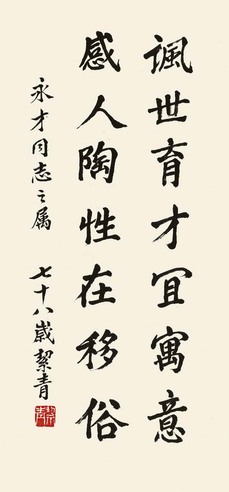 諷世育才宜寓意
感人陶性在移俗
永才同志之属
七十八歲絜青